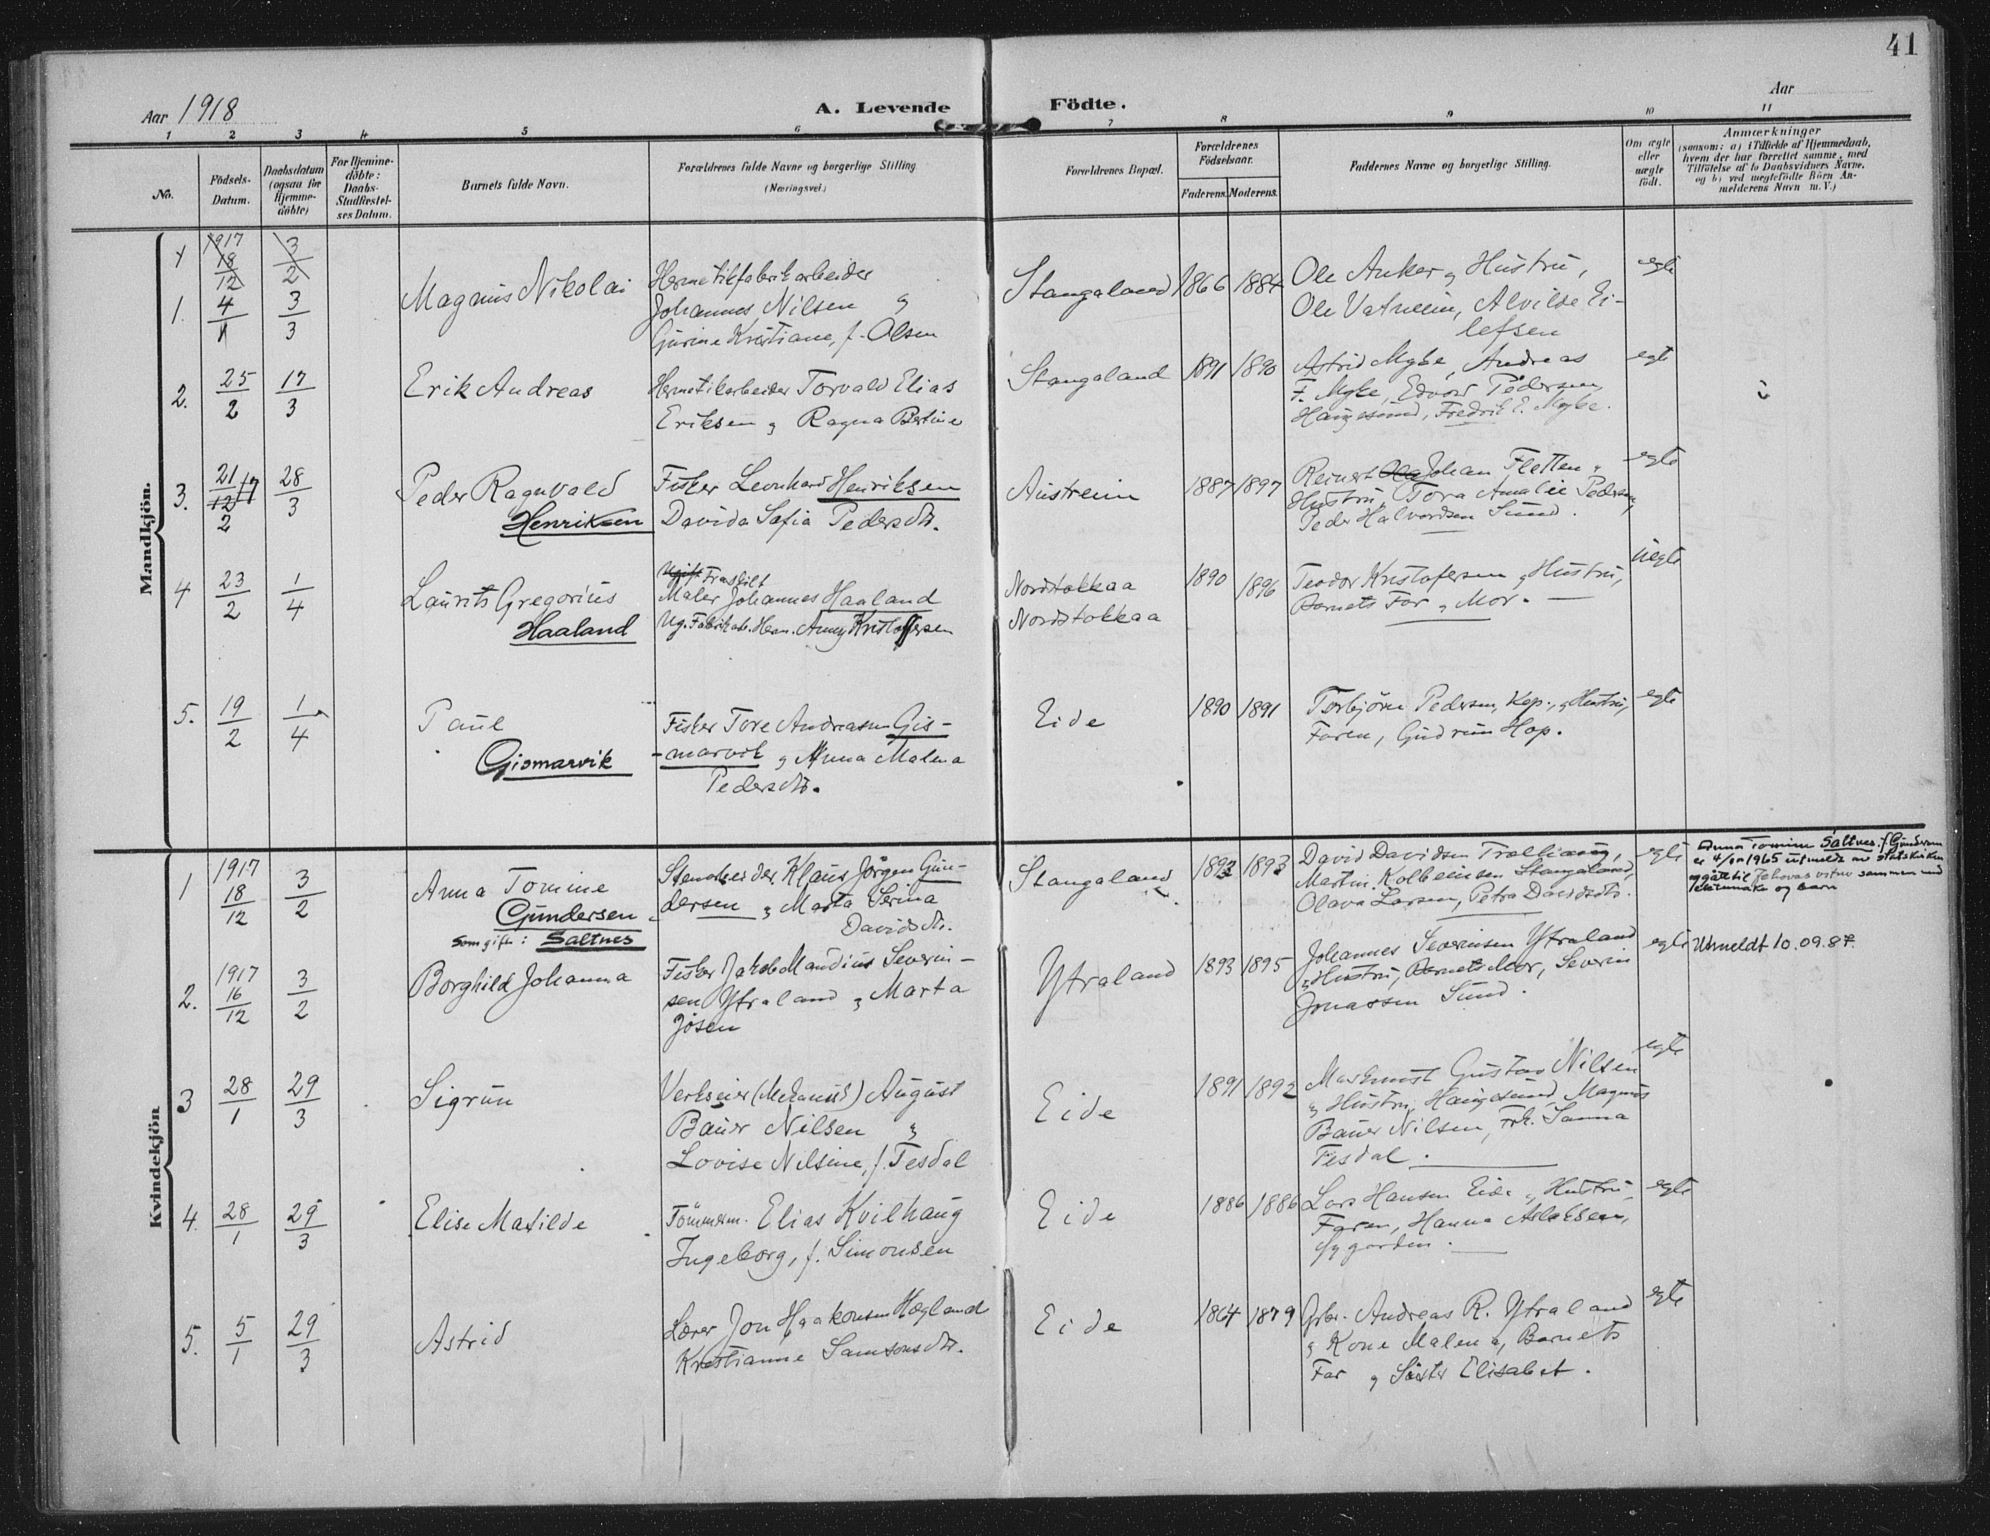 41
Aar 1918
A. Levende Födte.
Aar
1 2 3 4 5 6 7 8 9 10 11
No.
Födsels-
Datum.
Daabsdatum
(ogsaa för
Hjemme-
döbte)
For Hjemme-
döbte:
Daabs-
Stadfæstel-
ses Datum.
Barnets fulde Navn.
Forældrenes fulde Navne og borgerlige Stilling
(Næringsvei.)
Forældrenes Bopæl.
Forældrenes
Födselsaar.
Faderens. Moderens.
Faddernes Navne og borgerlige Stilling.
Om ægte
eller
uægte
födt.
Anmærkninger
(saasom: a) i Tilfælde af Hjemmedaab,
hvem der har forrettet samme, med
Tilföielse af to Daabsvidners Navne,
og b) ved uægtefödte Börn An-
melderens Navn m. V.)
Mandkjön.
1917
18/12 3/2
1. 4/1 3/3
Magnus Nikolai
Hermetikfabrikarbeider
Johannes Nilsen og
Gurine Kristiane, f. Olsen
Stangaland 1866 1884
Ole Anker og Hustru,
Ole Vatneim, Alvilde Ei-
lefsen
egte
2. 25/2 17/3
Erik Andreas
Hermetikarbeider Torvald Elias
Eriksen og Ragna Bertine
Stangaland 1891 1890
Astrid Myhe, Andreas
F. Myhe, Edvard Pedersen
Haugesund, Fredrik E. Myhe.
egt
3. 21/12 17 2 28/3
Peder Ragnvald
Henriksen
Fisker Leonhard Henriksen
Davida Sofia Pedersdtr.
Austreim 1887 1897
Reinert Johan Fletten og
Hustru, Tora Amalie Pedersen,
Peder Halvordsen Sund.
egte
4 23/2 1/4
Laurits Gregorius
Haaland
Ugift Fraskilt
Maler Johannes Haaland
Ug. Fabrikarb. Herm. Anny Kristoffersen
Nordstokkaa
Nordstokkaa
1890 1896
Teodor Kristofersen og Hustru,
Barnets Far og Mor.
uegte
5. 19/2 1/4
Paul
Gismarvik
Fisker Tore Andreasen Gis-
-marvik og Anna Malena
Pedersdtr.
Eide 1890 1891
Torbjörn Pedersen, Kop., og Hustru,
Faren, Gudrun Hop.
egte
Kvindekjön
1 1917 18/12 3/2
Anna Tomine
Gundersen
Som gift: Saltnes
Stenarbeider Klaus Jörgen Gun-
dersen og Marta Serina
Davidsdtr.
Stangaland 1892 1893
David Davidsen
Martin Kolbeinsen Stangaland,
Olava Larsen, Petra Davidsdtr.
egte
Anna Tomine Saltnes f. Gundersen
er 4/10 1965 utmeldt av statskirken
og gått til Jehovas vitner sammen med
ektemake og barn
2. 1917 16/12 3/2
Borghild Johanna
Fisker Jakob Mandius Severin-
sen Ytraland og Marta
Jösen
Ytraland 1893 1895
Johannes Severinsen Ytraland
og Hustru, Barnets Mor, Severin
Jonassen Sund.
egte
Utmeldt 10.09.87.
3 28/1 29/3
Sigrun
Verkseier (Mekanisk) August
Bauer Nilsen og
Lovise Nilsine, f. Tesdal
Eide 1891 1892
Maskinist Gustav Nilsen
og Hustru, Haugesund, Magnus
Bauer Nilsen, Frk. Sanna
Tesdal.
egte
4. 28/1 29/3
Elise Matilde
Tömmerm. Elias Kvilhaug
Ingeborg, f. Simonsen
Eide 1886 1886
Lars Hansen Eide og Hustru,
Faren, Hanna Aslaksen,
Sygarden.
egte
5. 5/1 29/3
Astrid
Lærer Jon Haakonsen Hægland
Kristianne Samsonsdtr.
Eide 1864 1879
Grbr. Andreas R. Ytraland
og Kone Malena, Barnets
Far og Söster Elisabet.
egte